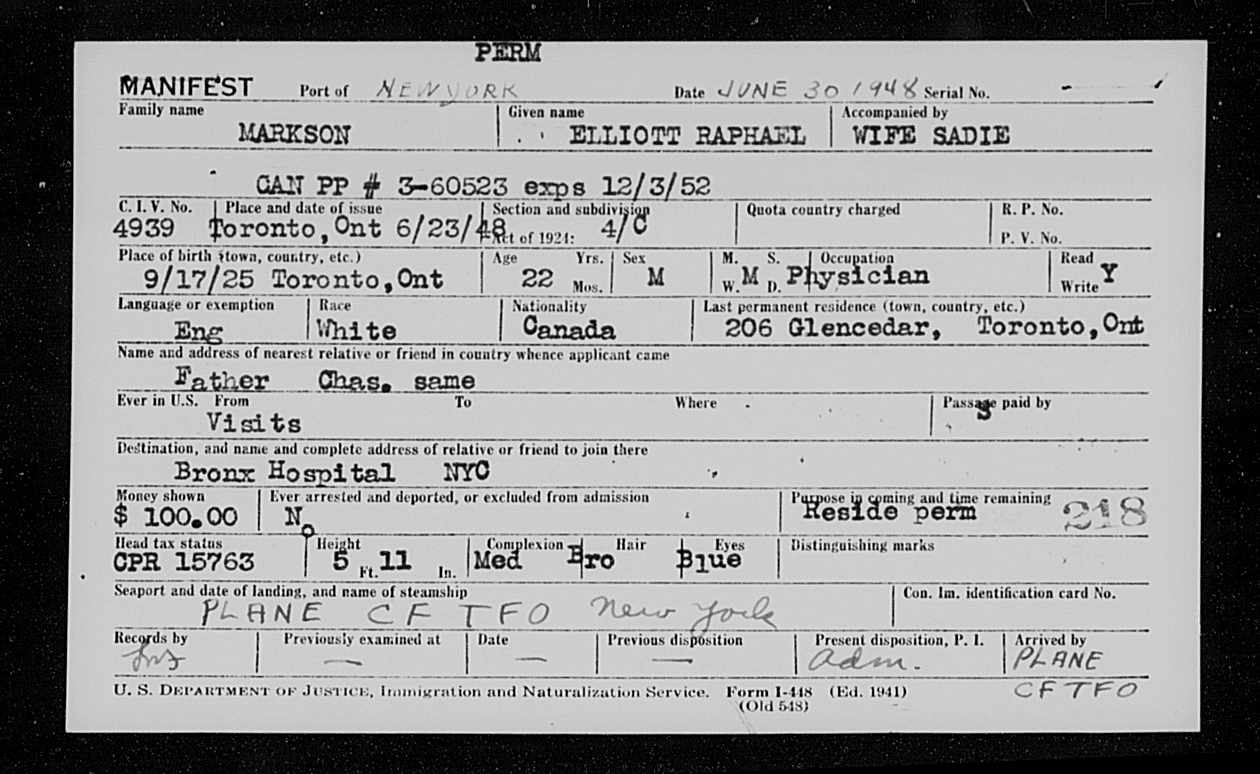 PERM
MANIFEST Port of NEW YORK Date JUNE 30 1948 Serial No. - 1
Family name Given name Accompanied by
MARKSON ELLIOTT RAPHAEL WIFE SADIE
CAN PP # 3-60523 exps 12/3/52
C. I. V. No. Place and date of issue Section and subdivision Quota country charged R. P. No.
4939 Toronto,Ont 6/23/48 Act of 1924: 4/C P. V. No.
Place of birth (town, country, etc.) Age Yrs. Sex M. S. Occupation Read
9/17/25 Toronto,Ont 22 Mos. M W. M D. Physician Write Y
Language or exemption Race Nationality Last permanent residence (town, country, etc.)
Eng White Canada 206 Glencedar, Toronto,Ont
Name and address of nearest relative or friend in country whence applicant came
Father Chas. same
Ever in U.S. From To Where Passage paid by
Visits S
Destination, and name and complete address of relative or friend to join there
Bronx Hospital NYC
Money shown Ever arrested and deported, or excluded from admission Purpose in coming and time remaining
$ 100.00 No Reside perm 218
Head tax status Height Complexion Hair Eyes Distinguishing marks
CPR 15763 5 Ft. 11 In. Med Bro Blue
Seaport and date of landing, and name of steamship Con. Im. identification card No.
PLANE CF TFO New York
Records by Previously examined at Date Previous disposition Present disposition, P. I. Arrived by
— — — adm. PLANE
U. S. DEPARTMENT OF JUSTICE, Immigration and Naturalization Service. Form I-448 (Ed. 1941) CFTFO
(Old 548)